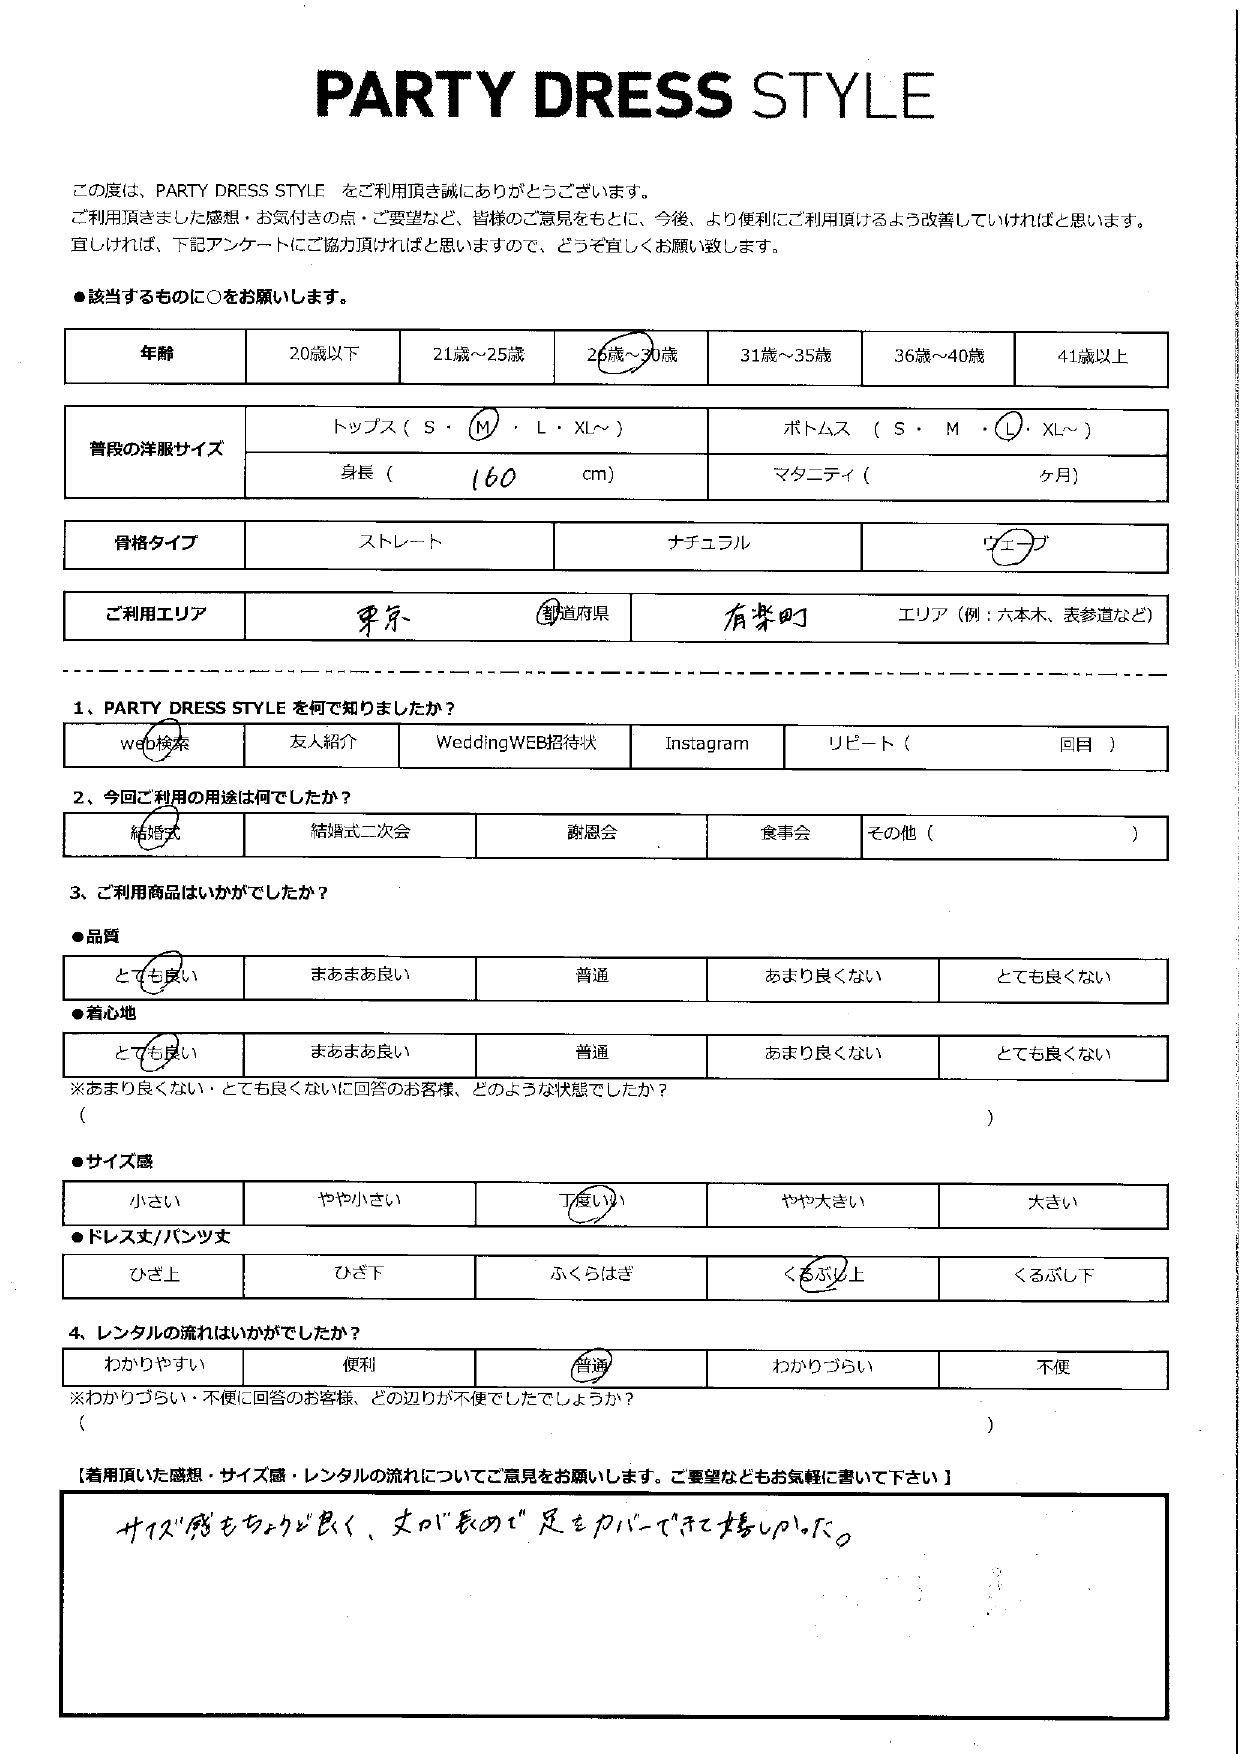 PARTY DRESS STYLE
この度は、PARTY DRESS STYLE をご利用頂き誠にありがとうございます。
ご利用頂きました感想・お気付きの点・ご要望など、皆様のご意見をもとに、今後、より便利にご利用頂けるよう改善していければと思います。
宜しければ、下記アンケートにご協力頂ければと思いますので、どうぞ宜しくお願い致します。
●該当するものに○をお願いします。
年齢 20歳以下 21歳～25歳 26歳～30歳 31歳～35歳 36歳～40歳 41歳以上
普段の洋服サイズ トップス ( S ・ M ・ L ・ XL～ ) ボトムス ( S ・ M ・ L ・ XL～ )
身長 ( 160 cm) マタニティ ( ヶ月)
骨格タイプ ストレート ナチュラル ウェーブ
ご利用エリア 東京 都道府県 有楽町 エリア（例：六本木、表参道など）
1、PARTY DRESS STYLE を何で知りましたか？
web検索 友人紹介 WeddingWEB招待状 Instagram リピート ( 回目 )
2、今回ご利用の用途は何でしたか？
結婚式 結婚式二次会 謝恩会 食事会 その他 ( )
3、ご利用商品はいかがでしたか？
●品質
とても良い まあまあ良い 普通 あまり良くない とても良くない
●着心地
とても良い まあまあ良い 普通 あまり良くない とても良くない
※あまり良くない・とても良くないに回答のお客様、どのような状態でしたか？
( )
●サイズ感
小さい やや小さい 丁度いい やや大きい 大きい
●ドレス丈/パンツ丈
ひざ上 ひざ下 ふくらはぎ くるぶし上 くるぶし下
4、レンタルの流れはいかがでしたか？
わかりやすい 便利 普通 わかりづらい 不便
※わかりづらい・不便に回答のお客様、どの辺りが不便でしたでしょうか？
( )
【着用頂いた感想・サイズ感・レンタルの流れについてご意見をお願いします。ご要望などもお気軽に書いて下さい】
サイズ感もちょうど良く、丈が長めで足をカバーできて嬉しかった。